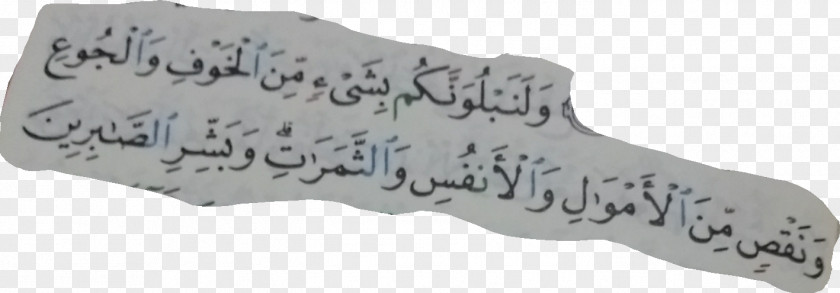 وَلَنَبْلُوَنَّكُم بِشَىْءٍ مِّنَ ٱلْخَوْفِ وَٱلْجُوعِ
وَنَقْصٍ مِّنَ ٱلْأَمْوَٰلِ وَٱلْأَنفُسِ وَٱلثَّمَرَٰتِ ۗ وَبَشِّرِ ٱلصَّـٰبِرِينَ